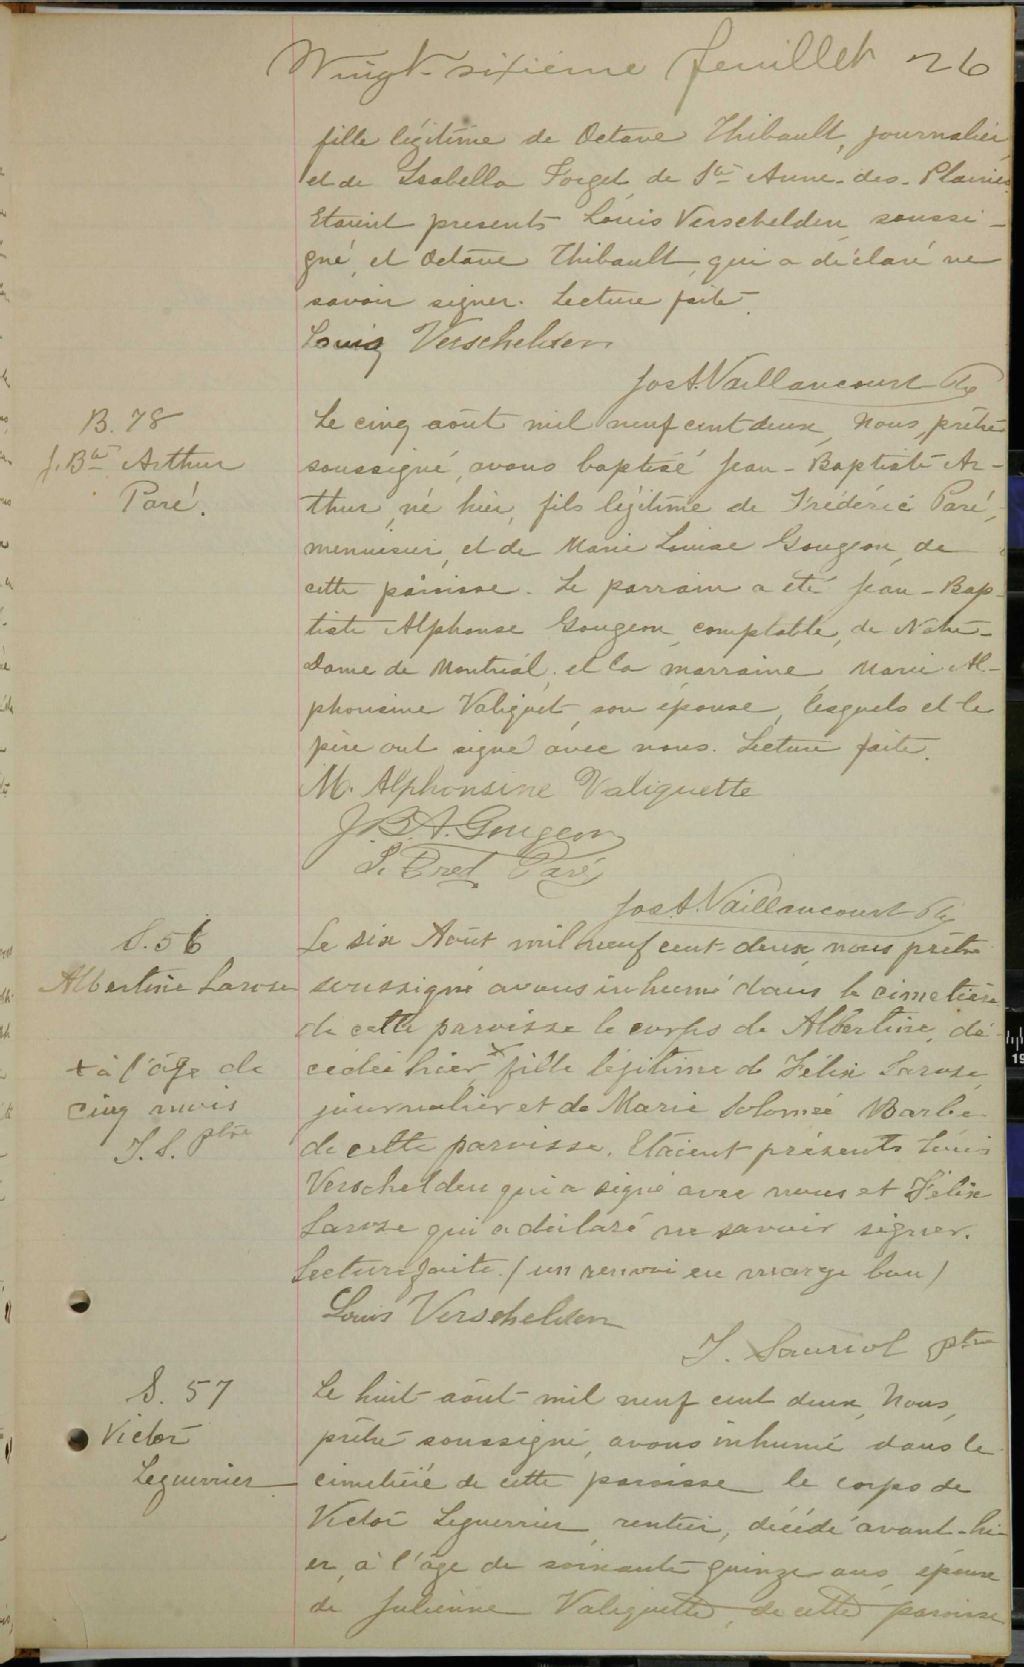 Vingt-sixième feuillet 26
fille légitime de Octave Thibault, journalier,
et de Isabella Forget, de Ste Anne-des-Plaines.
Etaient presents Louis Verschelden, soussi-
gné, et Octave Thibault, qui a déclaré ne
savoir signer. Lecture faite.
Louis Verschelden
Jos A. Vaillancourt Ptre
B. 78
J. Bte Arthur
Paré.
Le cinq août mil neuf cent deux, Nous, prêtre
soussigné, avons baptisé Jean-Baptiste Ar-
thur, né hier, fils légitime de Frédéric Paré,
menuisier, et de Marie Louise Gougeon, de
cette paroisse. Le parrain a été Jean-Bap-
tiste Alphonse Gougeon, comptable, de Notre-
Dame de Montréal, et la marraine Marie Al-
phonsine Valiquet, son épouse, lesquels et le
père ont signé avec nous. Lecture faite.
M. Alphonsine Valiquette
J. B. A. Gougeon
Fred Paré
Jos A. Vaillancourt Ptre
S. 56
Albertine Larose
Le six Août mil neuf cent-deux, nous prêtre
soussigné avons inhumé dans le cimetière
de cette paroisse le corps de Albertine, dé-
cédée hier x fille légitime de Félix Larose,
journalier et de Marie Solomée Barbe
de cette paroisse. Etaient présents Louis
Verschelden qui a signé avec nous et Félix
Larose qui a déclaré ne savoir signer.
Lecture faite. (un renvoi en marge bon)
x à l'âge de
cinq mois
J. S. ptre
Louis Verschelden
J. Sauriol ptre
S. 57
Victor
Leguerrier
Le huit août mil neuf cent deux, Nous,
prêtre soussigné, avons inhumé dans le
cimetière de cette paroisse le corps de
Victor Leguerrier, rentier, décédé avant-hi-
er, à l'âge de soixante quinze ans, époux
de Julienne Valiquette, de cette paroisse